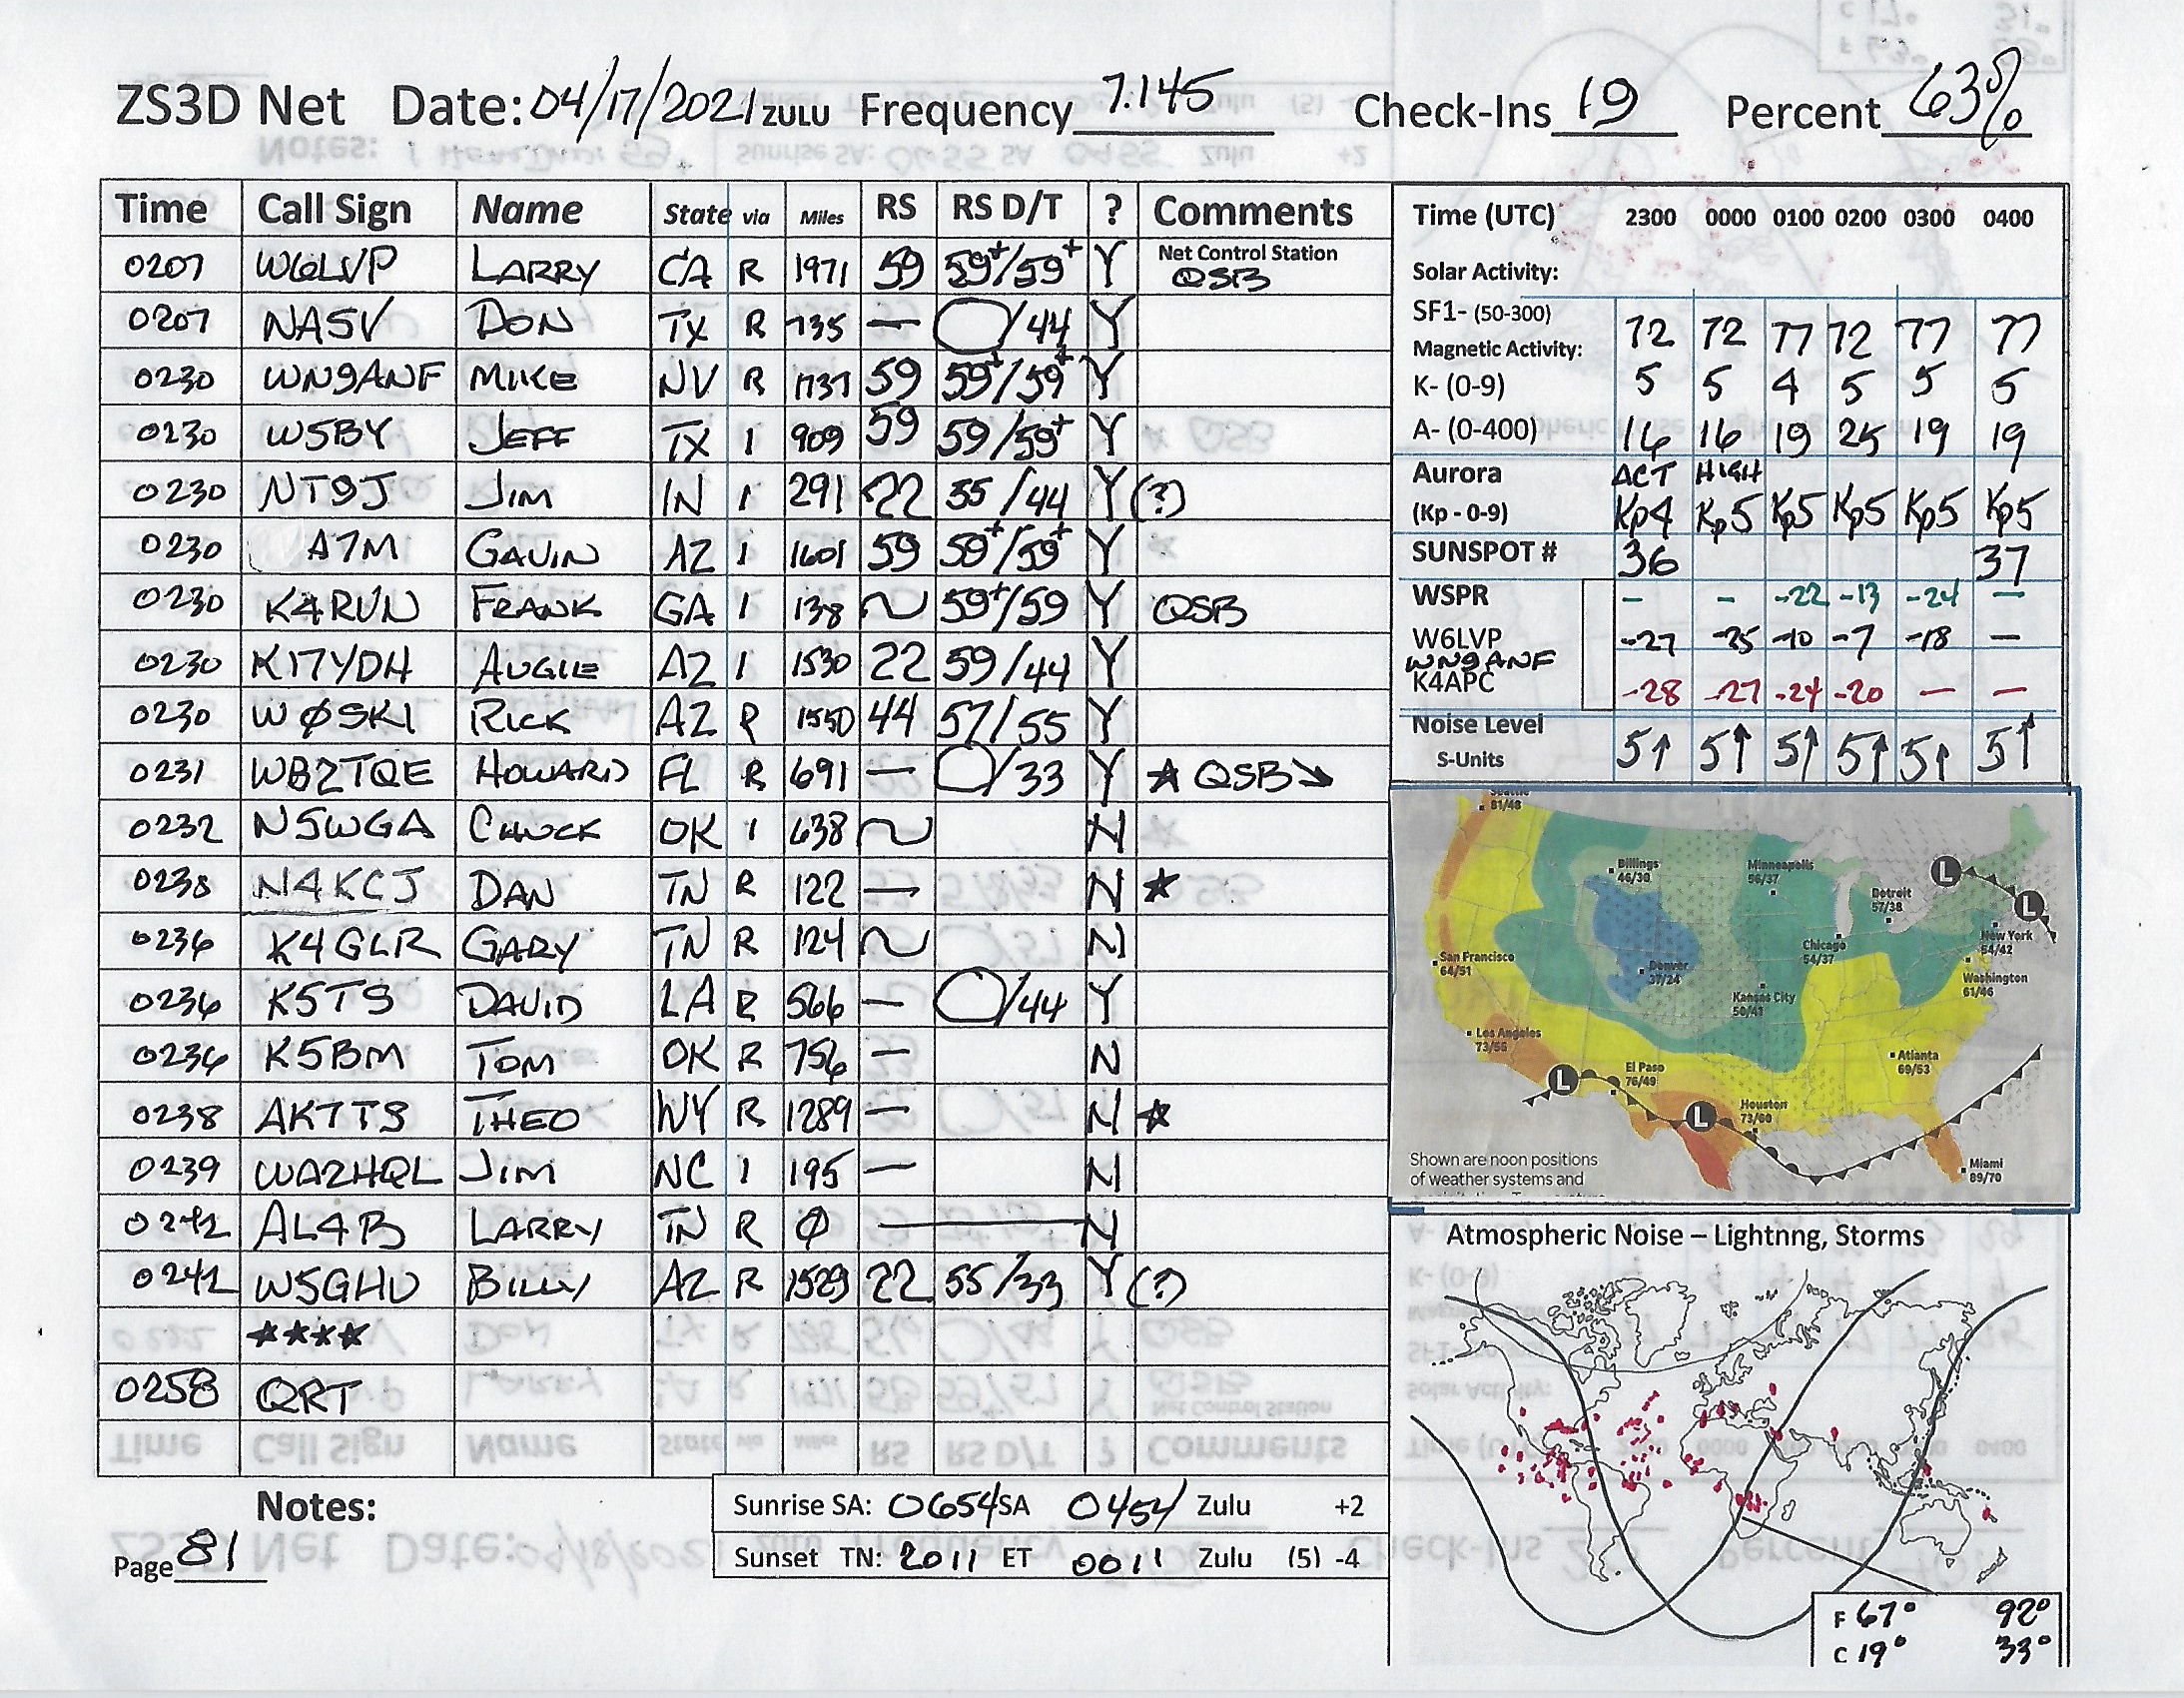 ZS3D Net Date: 04/17/2021 ZULU Frequency 7.145 Check-Ins 19 Percent 63%
Time Call Sign Name State via Miles RS RS D/T ? Comments
0207 W6LVP LARRY CA R 1971 59 59+/59+ Y Net Control Station QSB
0207 NA5V DON TX R 735 — O/44 Y
0230 WN9ANF MIKE NV R 1737 59 59+/59+ Y
0230 W5BY JEFF TX I 909 59 59/59+ Y
0230 NT9J JIM IN I 291 22 55/44 Y (?)
0230 A7M GAVIN AZ I 1601 59 59+/59+ Y
0230 K4RUN FRANK GA I 138 ~ 59+/59 Y QSB
0230 KI7YDH AUGIE AZ I 1530 22 59/44 Y
0230 WØSKI RICK AZ R 1550 44 57/55 Y
0231 WB2TQE HOWARD FL R 691 — O/33 Y ★ QSB↘
0232 N5WGA CHUCK OK I 638 ~ N
0238 N4KCJ DAN TN R 122 — N ★
0236 K4GLR GARY TN R 124 ~ N
0236 K5TS DAVID LA R 566 — O/44 Y
0236 K5BM TOM OK R 756 — N
0238 AK7TS THEO WY R 1289 — N ★
0239 WA2HQL JIM NC I 195 — N
0242 AL4B LARRY TN R Ø — N
0242 W5GHU BILLY AZ R 1529 22 55/33 Y (?)
★★★★
0258 QRT
Notes:
Page 81
Sunrise SA: 0654 SA 0454 Zulu +2
Sunset TN: 2011 ET 0011 Zulu (5) -4
Time (UTC) 2300 0000 0100 0200 0300 0400
Solar Activity:
SF1- (50-300) 72 72 77 72 77 77
Magnetic Activity:
K- (0-9) 5 5 4 5 5 5
A- (0-400) 16 16 19 25 19 19
Aurora ACT HIGH
(Kp - 0-9) Kp4 Kp5 Kp5 Kp5 Kp5 Kp5
SUNSPOT # 36 37
WSPR – – -22 -13 -24 —
W6LVP -27 -25 -10 -7 -18 —
WN9ANF
K4APC -28 -27 -24 -20 — —
Noise Level
S-Units 5↑ 5↑ 5↑ 5↑ 5↑ 5↑
Seattle
81/48
Billings
46/30
Minneapolis
56/37
L
Detroit
57/38
L
New York
54/42
Chicago
54/37
San Francisco
64/51
Denver
37/24
Washington
61/46
Kansas City
50/41
Los Angeles
73/56
Atlanta
69/53
El Paso
76/49
L
L
Houston
73/60
Miami
89/70
Shown are noon positions
of weather systems and
Atmospheric Noise – Lightnng, Storms
F 67° 92°
C 19° 33°